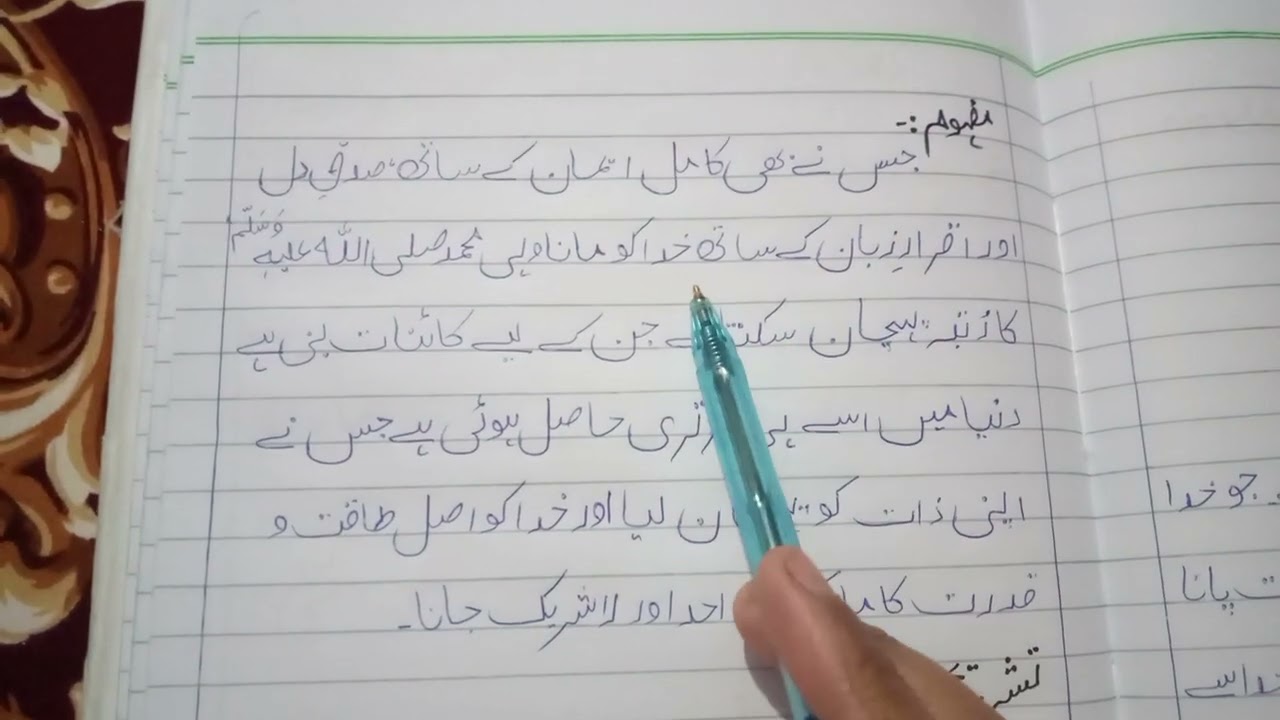 مفہوم:-
جس نے بھی کامل ایمان کے ساتھ، صدقِ دل
اور اقرارِ زبان کے ساتھ خدا کو مانا وہی محمد صلی اللہ علیہ وَسَلّم
کا رُتبہ پہچان جن کے لیے کائنات بنی ہے
دنیا میں اسے ہی حاصل ہوئی ہے جس نے
اپنی ذات کو لیا اور خدا کو اصل طاقت و
قدرت کا احد اور لاشریک جانا۔
جو خدا
پانا
سے